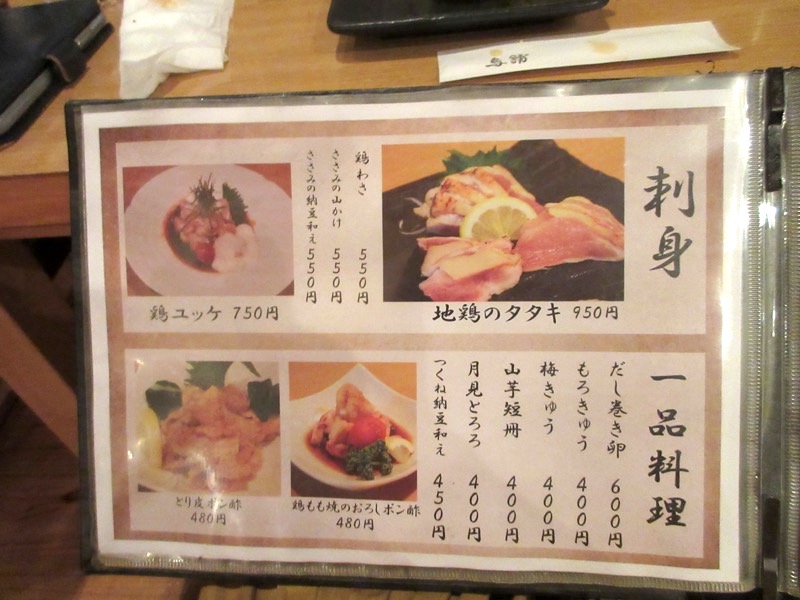 鳥錦
刺身
地鶏のタタキ 950円
鶏わさ 550円
ささみの山かけ 550円
ささみの納豆和え 550円
鶏ユッケ 750円
一品料理
だし巻き卵 600円
もろきゅう 400円
梅きゅう 400円
山芋短冊 400円
月見とろろ 400円
つくね納豆和え 450円
鶏もも焼のおろしポン酢
480円
とり皮ポン酢
480円